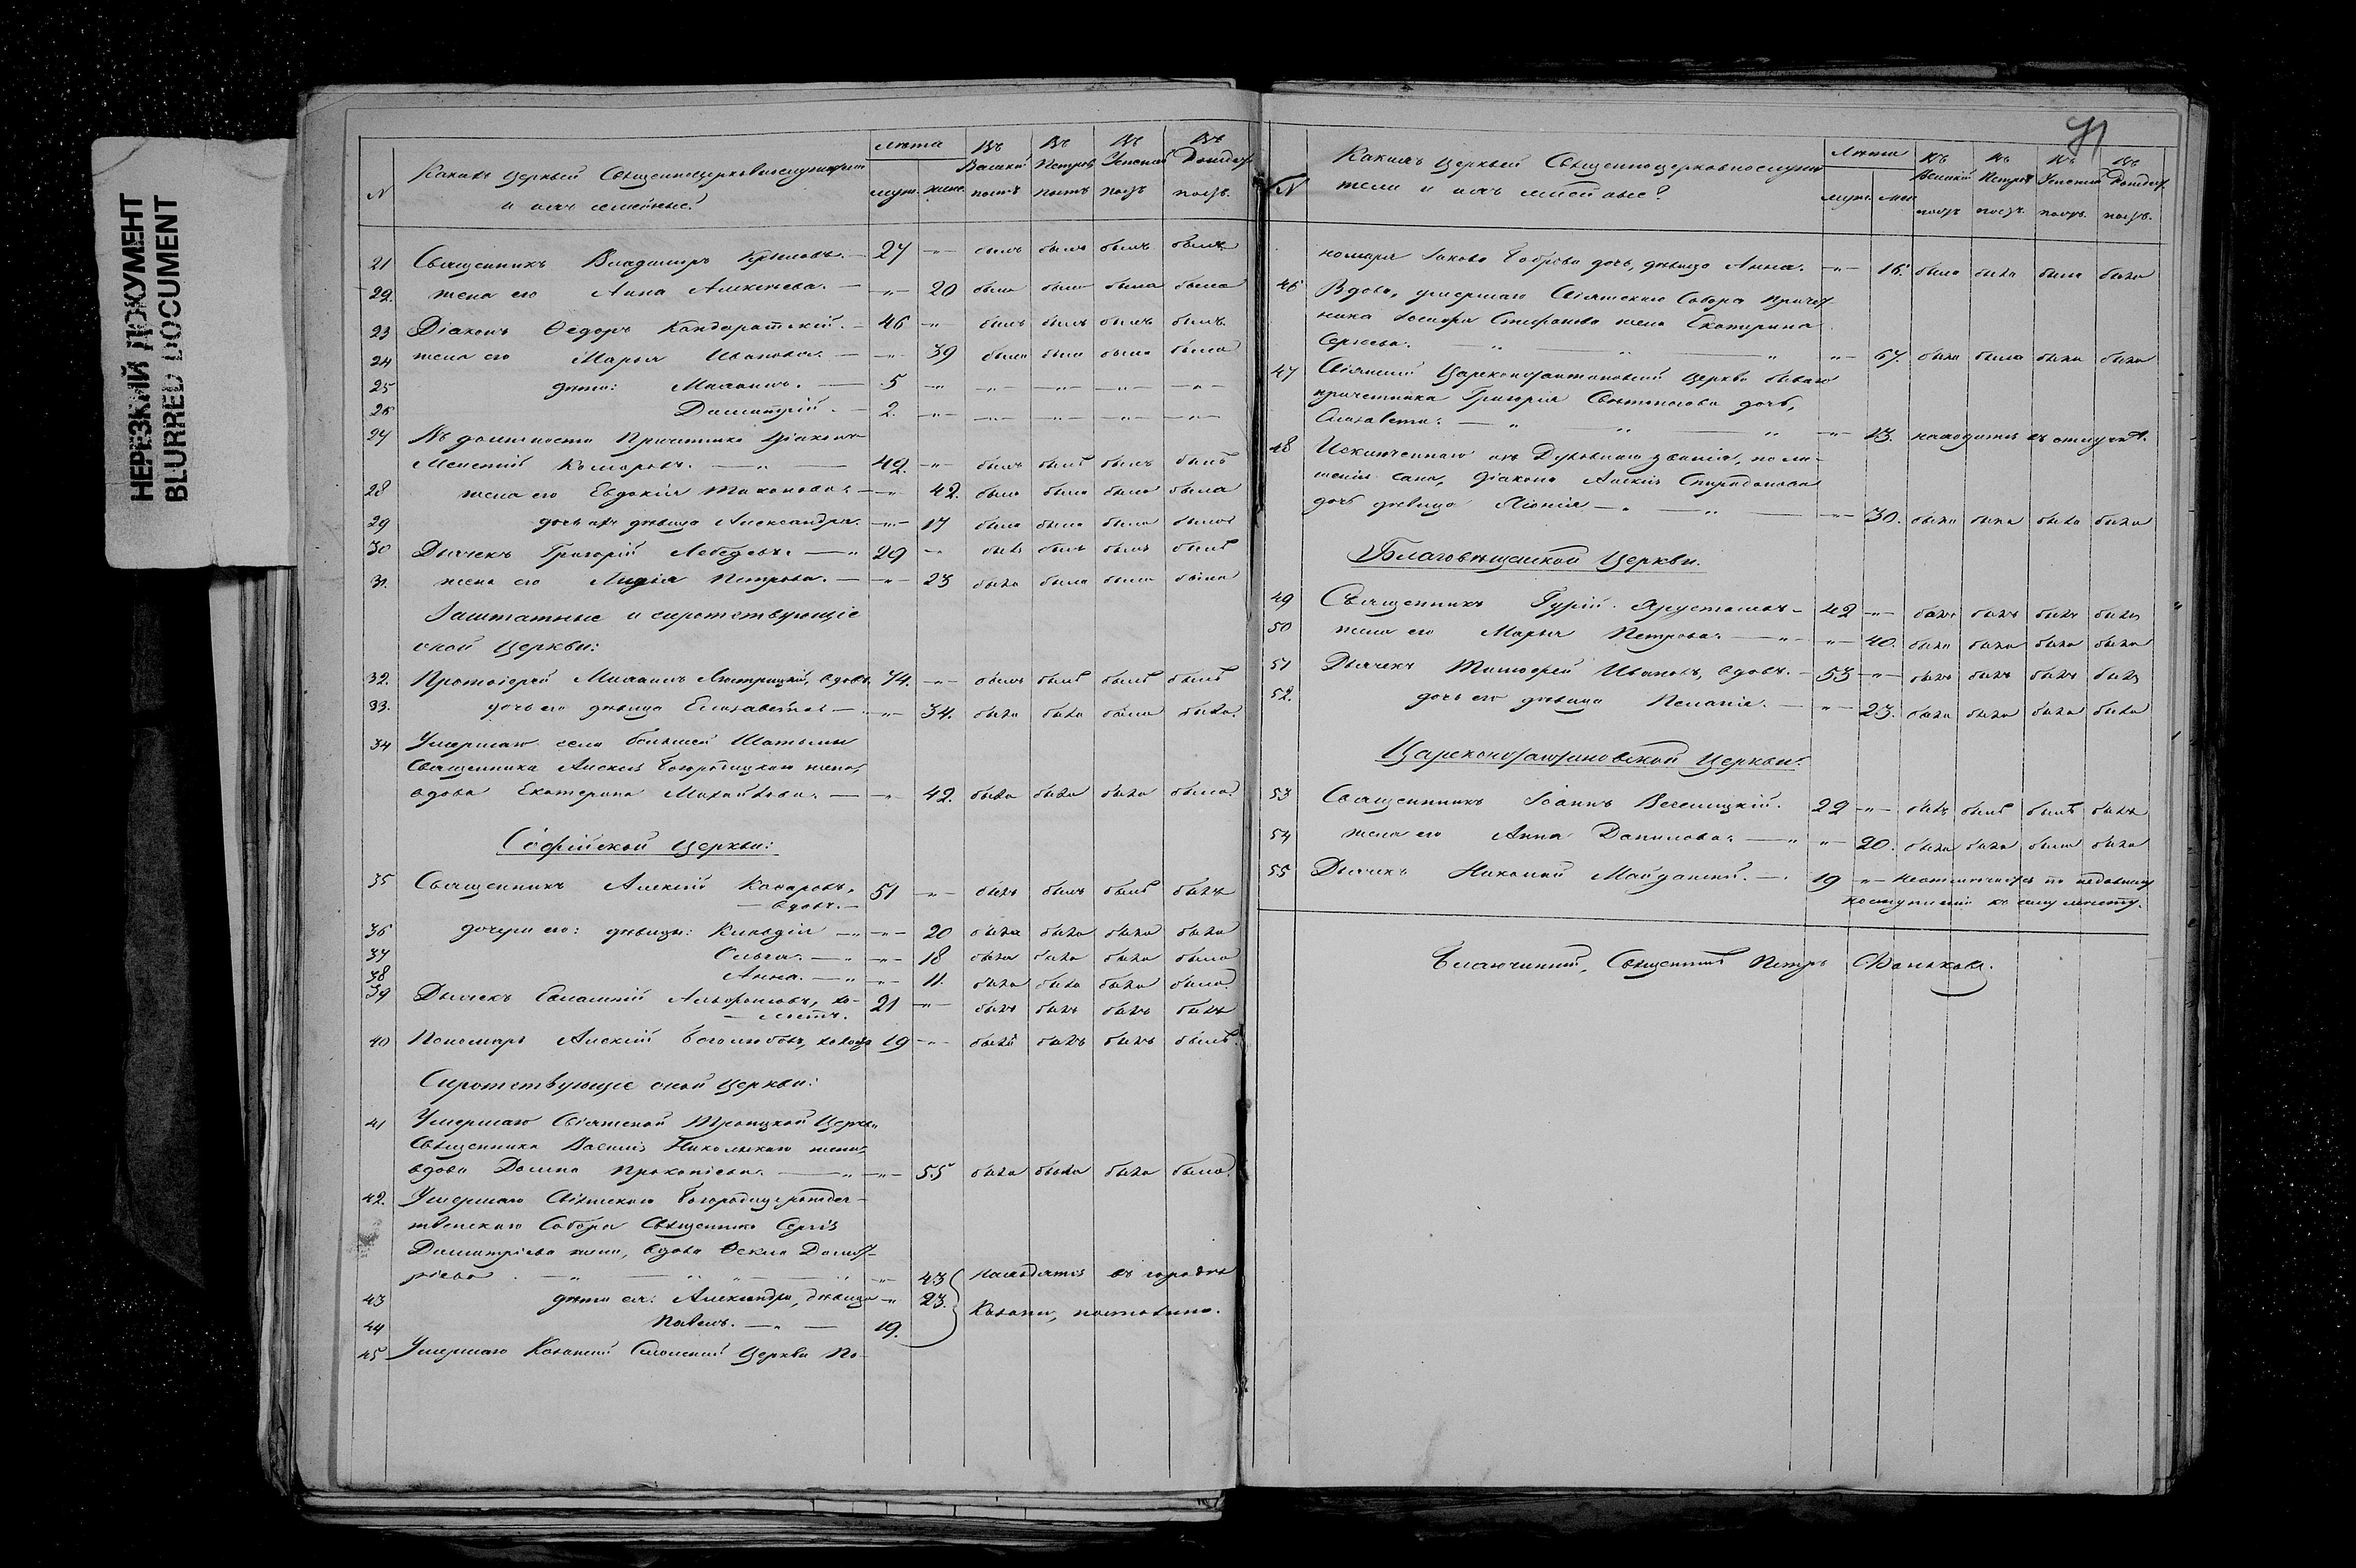 НЕРЕЗКИЙ ДОКУМЕНТ
BLURRED DOCUMENT
лѣта Въ Въ Въ Въ
№ Какихъ церквей Священноцерковнослужители Великій Петровъ Успенскій Рождест.
и ихъ семейные? муж. женс. постъ постъ постъ постъ.
21 Священникъ Владимиръ Крыловъ. — 27 —„— былъ былъ былъ былъ
22. жена его Анна Алексѣева. — —„— 20 была была была была
23 Діаконъ Ѳедоръ Кондаратскій. — 46 —„— былъ былъ былъ былъ.
24 жена его Марья Иванова. — —„— 39 была была была была
25 дѣти: Михаилъ. — 5 —„— —„— —„— —„— —„—
26 Димитрій. — 2. —„— —„— —„— —„— —„—
27 Въ должности Причетника Діаконъ
Комаровъ. —„— 42. —„— былъ былъ былъ былъ
28 жена его Евдокія Тихонова. —„— 42. была была была была
29 дочь ихъ дѣвица Александра. —„— 17 была была была была
30 Дьячекъ Григорій Лебедевъ. —„ 29 —„ былъ былъ былъ былъ
31. жена его Лидія Петрова. — —„— 23 была была была была
Заштатные и сиротствующіе
оной Церкви:
32. Протоіерей Михаилъ вдовъ. 74. —„— былъ былъ былъ былъ
33. дочь его дѣвица Елизавета — —„— 34. была была была была.
34 Умершаго села большой Шатьмы
Священника Алексія Богородицкаго жена,
вдова Екатерина Михайлова. — —„— 42. была была была была.
Софійской Церкви:
35 Священникъ Алексій 51 —„— былъ былъ былъ былъ
— вдовъ. —
36 дочери его: дѣвицы: Клавдія —„— —„— 20 была была была была
37 Ольга. —„ —„— 18 была была была была
38 Анна. —„ —„— 11. была была была была.
39 Дьячекъ хо- 21 —„— былъ былъ былъ былъ
— лостъ.
40 Пономарь Алексій Боголюбовъ, холостъ 19 —„— былъ былъ былъ былъ.
Сиротствующіе оной Церкви:
41 Умершаго Свіяжской Троицкой Церкви
Священника Василія Никольскаго жена,
вдова Домна Прокопіева. —„ —„— 55 была была была была.
42. Умершаго Свіяжскаго Богородицерождест-
твенскаго Собора Священника Сергія
Димитріева жена, вдова Ѳекла Димит-
ріева. —„— 43 находятся въ городѣ
43 дѣти ея: Александра, дѣвица —„ 23. Казани, постоянно.
44 Павелъ. —„ — 19.
45 Умершаго Казанской Церкви По-
71
Лѣта Въ Въ Въ Въ
№ Какихъ церквей Священноцерковнослужи- Великій Петровъ Успенскій Рождест.
тели и ихъ семейные? муж. жен. постъ постъ. постъ. постъ.
номаря Іакова Боброва дочь, дѣвица Анна. —„— 16. была была была была
46 Вдова, умершаго Свіяжскаго Собора причет-
ника Стефанова жена Екатерина
Сергѣева. —„— 67. была была была была
47 Свіяжской Цареконстантиновской церкви бывшаго
причетника Григорія дочь,
Елизавета. —„— 13. находится въ отлучкѣ.
48 Исключеннаго изъ Духовнаго званія, по ли-
шеніи сана, діакона Алексія Спиридонова
дочь дѣвица —„— 30. была была была была
Благовѣщенской Церкви.
49 Священникъ Гурій Хрусталевъ — 42 —„— былъ былъ былъ былъ
50 жена его Марья Петрова. —„— —„— 40. была была была была
51 Дьячекъ Тимофей Ивановъ, вдовъ. — 53 —„— былъ былъ былъ былъ
52. дочь его дѣвица Пелагія. — —„— 23. была была была была
Цареконстантиновской Церкви.
53 Священникъ Іоаннъ Веселицкій. 29 —„— былъ былъ былъ былъ
54 жена его Анна Данилова. —„ „— 20. была была была была
55 Дьячекъ Николай Майданскій. —. 19 „— неотмѣчается по недавнему
поступленію къ сему мѣсту.
Благочинный, Священникъ Петръ